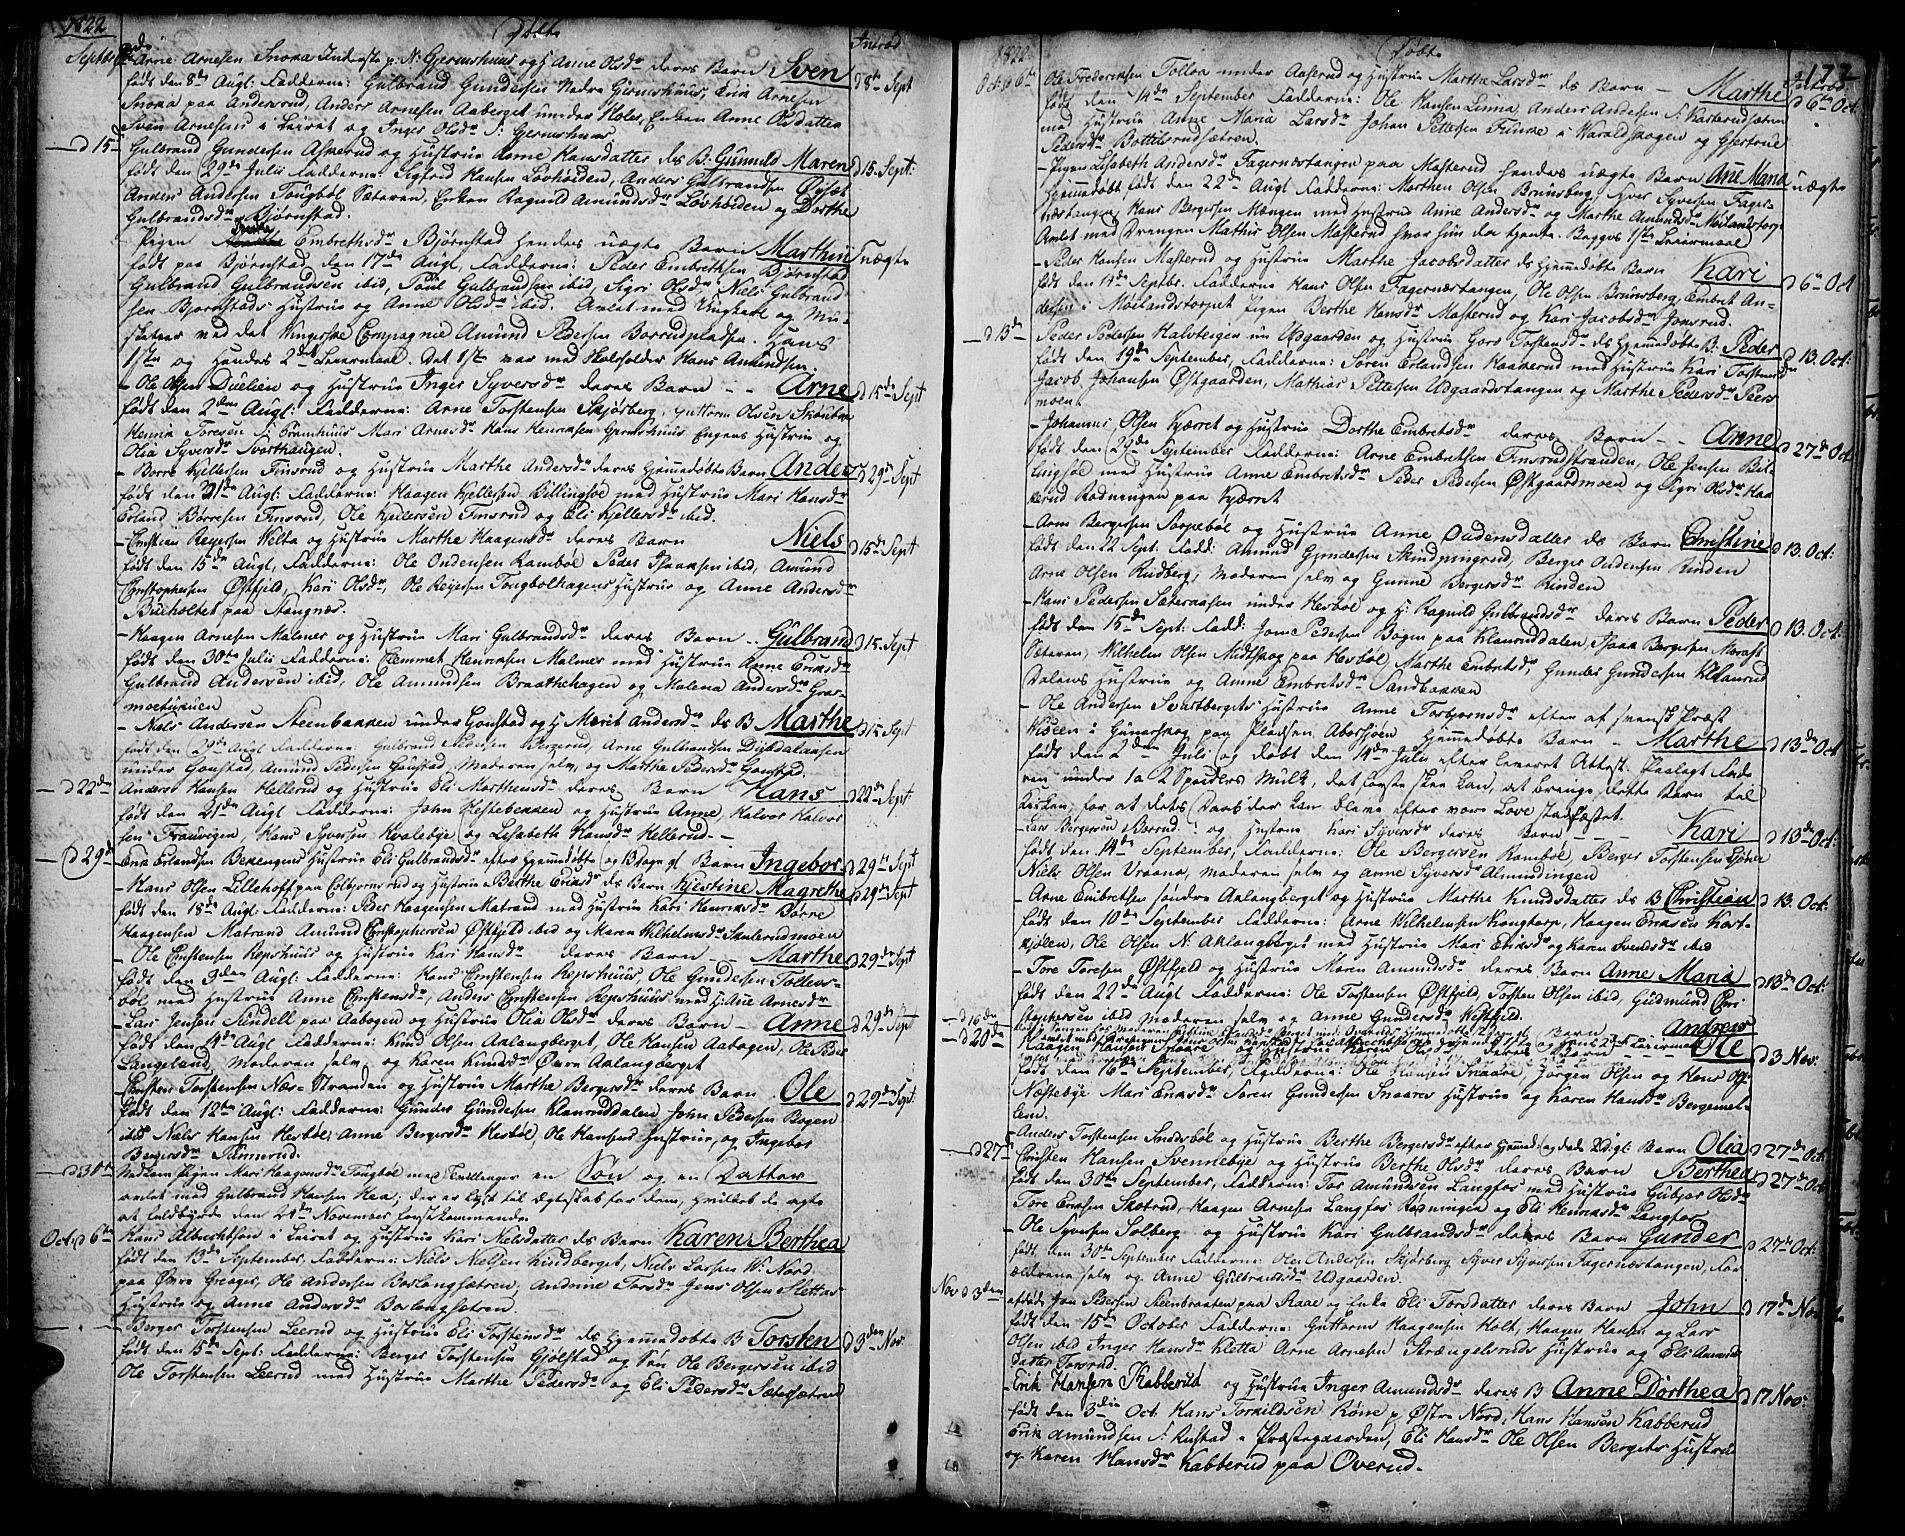 1822
Døbte
Introd
Septbr
Arne Arnesen Snoka Inderste p. N: Gjermshuus og H Anne Olsdr deres Barn Sven d 8de Sept
født den 8de Augl: Fadderne: Gulbrand Gundersen Nedre Gjermshuus, Erik Arnesen
Snoka paa Andersrud, Anders Arnesen Aaberget under Holes, Enken Anne Olsdatter
Sven Arnesen i Leiret og Inger Olsdr S: Gjermshuus
d 15 Gulbrand Gundersen Askerud og Hustrue Anne Hansdatter ds B: Gunnild Maren d 15. Sept:
født den 29de Julii Fadderne: Sigford Hansen Lovhoiden, Anders Gulbrandsen
Anders Andersen Tougbøl Sæteren, Enken Ragnild Amundsdr Lovhoiden og Dorthe
Gulbrandsdr Bjørnstad.
Pigen Embrethsdr Bjørnstad hendes uægte Barn Marthin uægte
født paa Bjørnstad, den 17de Augl, Fadderne: Peder Embrethsen Bjørnstad
Gulbrand Gulbrandsen ibid, Poul Gulbrandsen ibid, Sigri Olsdr Niels Gulbrand-
sen Bjørnstads Hustrue og Anne Olsdr ibid. Avlet med Ungkarl og Mu-
sketeer ved det Vingerske Compagnie Amund Pedersen Borrudpladsen. Hans
1ste og Hendes 2det Leiermaal. Det 1ste var med Skolholder Hans Amundsen.
Ole Olsen Duelien og Hustrue Inger Syversdr deres Barn - - Arne d 15de Sept
født den 2den Augl: Fadderne: Arne Torstensen Skjørberg, Guttorm Olsen
Henrik Toresen S: Framhuus Mari Arnesdr Hans Henriksen Gjermshuus Hustrue og
Olia Syversdr Svorthaugen.
Borre Kjellersen Finsrud og Hustrue Marthe Andersdr deres Hjemmedøbte Barn Anders d 29de Sept
født den 21de Augl: Fadderne: Haagen Kjellersen Billingsøe med Hustrue Mari Hansdr
Erland Børresen Finsrud, Ole Kjellersen Finsrud og Eli Kjellersdr ibid.
Christian Reyersen Velta og Hustrue Marthe Haagensdr deres Barn Niels d 15de Sept
født den 15de Augl, Fadderne: Ole Ondensen Ramboe Peder Isaaksen ibid, Amund
Christophersen Østfjeld, Kari Olsdr, Ole Reyersen Tougbolhagens Hustrue og Anne Andersdr
Brueholtet paa Stangnæs.
Haagen Arnesen Malmer og Hustrue Mari Gulbrandsdr deres Barn Gulbrand d 15 Sept
født den 30te Julii Fadderne: Clemmet Henriksen Malmer med Hustrue Anne Eriksdr
Gulbrand Andersen ibid, Ole Amundsen Braathehagen og Malena Andersdr Gras-
Niels Andersen Steenbakken under Gonstad og H Marit Andersdr ds B Marthe d 15 Sept
født den 29de Augl Fadderne: Gulbrand Pedersen Bergerud, Arne Gulbrandsen Dybdalaasen
under Gonstad, Amund Pedersen Gonstad, Moderen selv, og Marthe Pedersdr Gonstad.
d 22de Anders Hansen Hellerud og Hustrue Eli Morthensdr deres Barn Hans d 22de Sept
født den 21de Augl Fadderne: John Hestebekken og Hustrue Anne, Halvor Halvor
sen Frauvigen, Hans Syversen Kvalebye og Lisabeth Hansdr Hellerud. -
d 29de Erik Erlandsen Bekengen Hustrue Eli Gulbrandsdr efter Hjemmedøbte og 13 dage gl Barn Ingebor d 29de Sept
Hans Olsen Lillehoff paa Eilbjornsrud og Hustrue Berthe Eriksdr ds Barn Kjestine Magrethe d 29de Sept
født den 18de Augl: Fadderne: Peder Haagensen Matrand med Hustrue Kari Henriksdr Børre
Haagensen Matrand Amund Christophersen Østfjeld ibid og Maren Wilhelmsdr Skulerudmoen
Ole Christensen Repshuus og Hustrue Kari Hansdr deres Barn - Marthe d 29de Sept
født den 3den Augl: Fadderne: Hans Christensen Repshuus, Ole Gundersen Tollevs-
bøl med Hustrue Anne Christensdr, Anders Christensen Repshuus med H: Anne Arnesdr
Lars Jensen Sindell paa Aabogen og Hustrue Olia Olsdr deres Barn - Anne d 29de Sept
født den 14de Augl Fadderne: Knud Olsen Aalangberget, Ole Hansen Aabogen, Ole Peder
Langeland, Moderen selv, og Karen Knudsdr Øvre Aalangberget
Christen Torstensen Næs-Stranden og Hustrue Marthe Bergersdr deres Barn Ole d 29de Sept.
født den 12te Augl: Fadderne: Gunder Gundersen Klanruddalen, John Pedersen Bogen
ibid Niels Hansen Hesbøl, Anne Bergersdr Hesbøl, Ole Hansens Hustrue, og Ingebor
Bergersdr Tannerud.
d 30te Pigen Mari Haagensdr Tougbøl med Tvillinger en Søn og en Datter
avlet med Gulbrand Hansen Hea; der er lyst til Ægteskab for dem, hvilket de agte
at fuldbyrde den 21de November førstkommende.
Oct: d 6te Hans Albrechtsen i Leiret og Hustrue Kari Nielsdatter ds Barn Karen Berthea
født den 13de September, Fadderne: Niels Nielsen Lindberget, Niels Larsen W: Nord
paa Øvre Greager, Ole Andersen Baslangsetren, Andrine Torsdr Jens Olsen Slettens
Hustrue og Anne Andersdr Baslangsetren.
Berger Torstensen Leerud og Hustrue Eli Torstensdr ds Hjemmedøbte B Torsten d 3den Nov:
født den 15de Sept: Fadderne: Berger Torstensen Gjølstad og Søn Ole Bergersen ibid
Ole Torstensen Leerud med Hustrue Marthe Pedersdr og Eli Pedersdr Sætersætren
1822
Døbte
172
Introd.
Oct: d 6te Ole Frederiksen Tolloa under Aaserud og Hustrue Marthe Larsdr ds Barn - Marthe d 6te Oct.
født den 14de September Fadderne: Ole Hansen Linna, Anders Andersen S: Karterudsætren
med Hustrue Anne Maria Larsdr Johan Pettersen Finke i Varaldskogen og Gjertrue
Pedersdr Bottilsrudsætren.
Pigen Lisabeth Andersdr Fagernæstangen paa Masterud hendes uægte Barn Ane Maria uægte
Hjemmedøbt født den 22de Augl Fadderne: Morthen Olsen Brunsberg, Syver Syversen Fager-
næstangen, Hans Bergersen Mængen med Hustrue Anne Andersdr og Marthe Amundsdr Moelandstorp
Avlet med Drengen Mathis Olsen Masterud hvor hun da tjente. Begges 1ste Leiermaal
Peder Hansen Masterud og Hustrue Marthe Jacobsdatter ds Hjemmedøbte Barn Kari d 6te Oct
født den 14de Septbr. Fadderne Hans Olsen Fagernæstangen, Ole Olsen Brunsberg, Embret An-
dersen i Moelandstorpet Pigen Berthe Hansdr Masterud og Kari Jacobsdr Jonsrud.
d 13de Peder Pedersen Halvteigen un Udgaarden og Hustrue Goro Torstensdr ds Hjemmedøbte B. Peder d 13 Oct:
født den 19de September, Fadderne: Søren Erlandsen Haakerud med Hustrue Kari Torstensdr
Jacob Johansen Østgaarden, Mathias Pettersen Udgaardstangen og Marthe Pedersdr Peers
moen.
Johannes Olsen Kjærret og Hustrue Dorthe Embretsdr deres Barn - Anne d 27de Oct
født den 22de September Fadderne: Arne Embretsen Finsrudstranden, Ole Jensen Bil-
lingsøe med Hustrue Anne Embretsdr Peder Pedersen Østgaardmoen og Sigri Olsdr Haa
kerud Rødningen paa Kjærret
Aron Bergersen Torpebøl og Hustrue Anne Oudensdatter ds Barn Christine d 13. Oct:
født den 22 Sept. Fadd: Amund Gundersen Skindpungrud, Berger Oudensen Rinden
Arne Olsen Rudberg, Moderen selv og Gunne Bergersdr Rinden
Hans Pedersen Sæteraasen under Hesbøl og H: Ragnild Gulbrandsdr deres Barn Peder d 13. Oct:
født den 15de Sept: Fadd: Jon Pedersen Bogen paa Klanruddalen, Isaak Bergersen Morast
Sæteren, Wilhelm Olsen Midtskog paa Hesbøl, Marthe Embretsdr, Gunder Gundersen Klanrud
Dalens Hustrue og Anne Embretsdr Sandbakken
Ole Andersen Svartbergets Hustrue Anne Torbjørnsdr efter af svensk Præst
Wiseen i Gunarskog paa Pladsen Aborsjøen Hjemmedøbte Barn - Marthe d 13de Oct
født den 2den Juli og døbt den 14de Julii efter leveret Attest. Paalagt Fade
ren under 1 a 2 Speciders Mulk, det første skee kan, at bringe dette Barn til
Kirken, for at dets Daab der kan blive efter vore Love stadfæstet.
Lars Bergersen Borrud og Hustrue Kari Syversdr deres Barn - Kari d 13de Oct:
født den 14de September, Fadderne: Ole Bergersen Ramboe, Berger Torstensen
Niels Olsen Vraana, Moderen selv og Anne Syversdr Almindingen
Arne Embretsen søndre Aalangberget og Hustrue Marthe Knudsdatter ds B Christian d 13. Oct:
født den 10de September Fadderne: Arne Wilhelmsen Kongtorp, Haagen Eriksen Kors-
kjølen, Ole Olsen N: Aklangberget med Hustrue Mari Eriksdr og Karen Svendsdr ibid
Tore Toresen Østfjeld og Hustrue Maren Amundsdr deres Barn Anne Maria d 13de Oct:
født den 22de Augl Fadderne: Ole Torstensen Østfjeld, Torsten Olsen ibid, Gudmund Chri-
stophersen ibid Moderen selv og Anne Gundersdr Westfjeld.
d 16de Barn Andreas
d 20de Haagen Hansen Snaare og Hustrue Karen Olsdr deres Barn Ole d 3 Nov:
født den 16de September, Fadderne: Ole Hansen Snaare, Jørgen Olsen og Hans Ols:
Noltebye Mari Eriksdr Søren Gundersen Snaares Hustrue og Karen Hansdr Bergemel-
lem.
d 27de Anders Torstensen Snodsbøl og Hustrue Berthe Bergersdr efter Hjemmed: og døde 2 d. gl. Barn Olia d 27de Oct
Christen Hansen Svennebye og Hustrue Berthe Olsdr deres Barn Berthea d 27de Oct
født den 30te September, Fadderne: Tor Amundsen Langfos med Hustrue Gubjør Olsdr
Tore Eriksen Skotrud, Haagen Arnesen Langfos Rødningen og Eli Henriksdr Langfos
Ole Syversen Solberg og Hustrue Kari Gulbrandsdr deres Barn Gunder d 27de Oct:
født den 30te September Fadderne: Ole Andersen Skjørberg Syver Syversen Fagernæstangen, For
ældrene selv og Anne Gulbrandsdr Udgaarden.
Nov d 3den afdøde Jon Pedersen Steenbraaten paa Raae og Enke Eli Torsdatter deres Barn John d 17de Nov
født den 15de October Fadderne: Guttorm Haagensen Holt, Haagen Hansen og Lars
Olsen ibid Inger Hansdr Kletta Arne Arnesen Strængelsruds Hustrue og Eli Amund
datter Torsrud.
Erik Hansen Kabberud og Hustrue Inger Amundsdr deres B Anne Dorthea d 17 Nov:
født den 3die Oct. Hans Torkildsen Røne p. Østre Nord, Hans Hansen Kabberud
Erik Amundsen S: Rustad i Præstegaarden, Eli Hansdr Ole Olsen Bergets Hustrue
og Karen Hansdr Kabberud paa Overud.